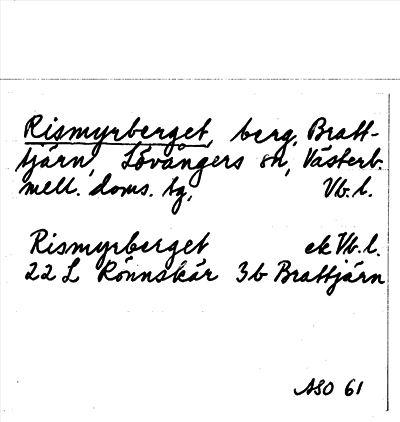 Rismyrberget, berg, Bratt-
tjärn, Lövångers sn, Västerb.
mell. doms. tg, Vb. l.
Rismyrberget ek Vb. l.
22 L Rönnskär 3b Brattjärn
ASO 61